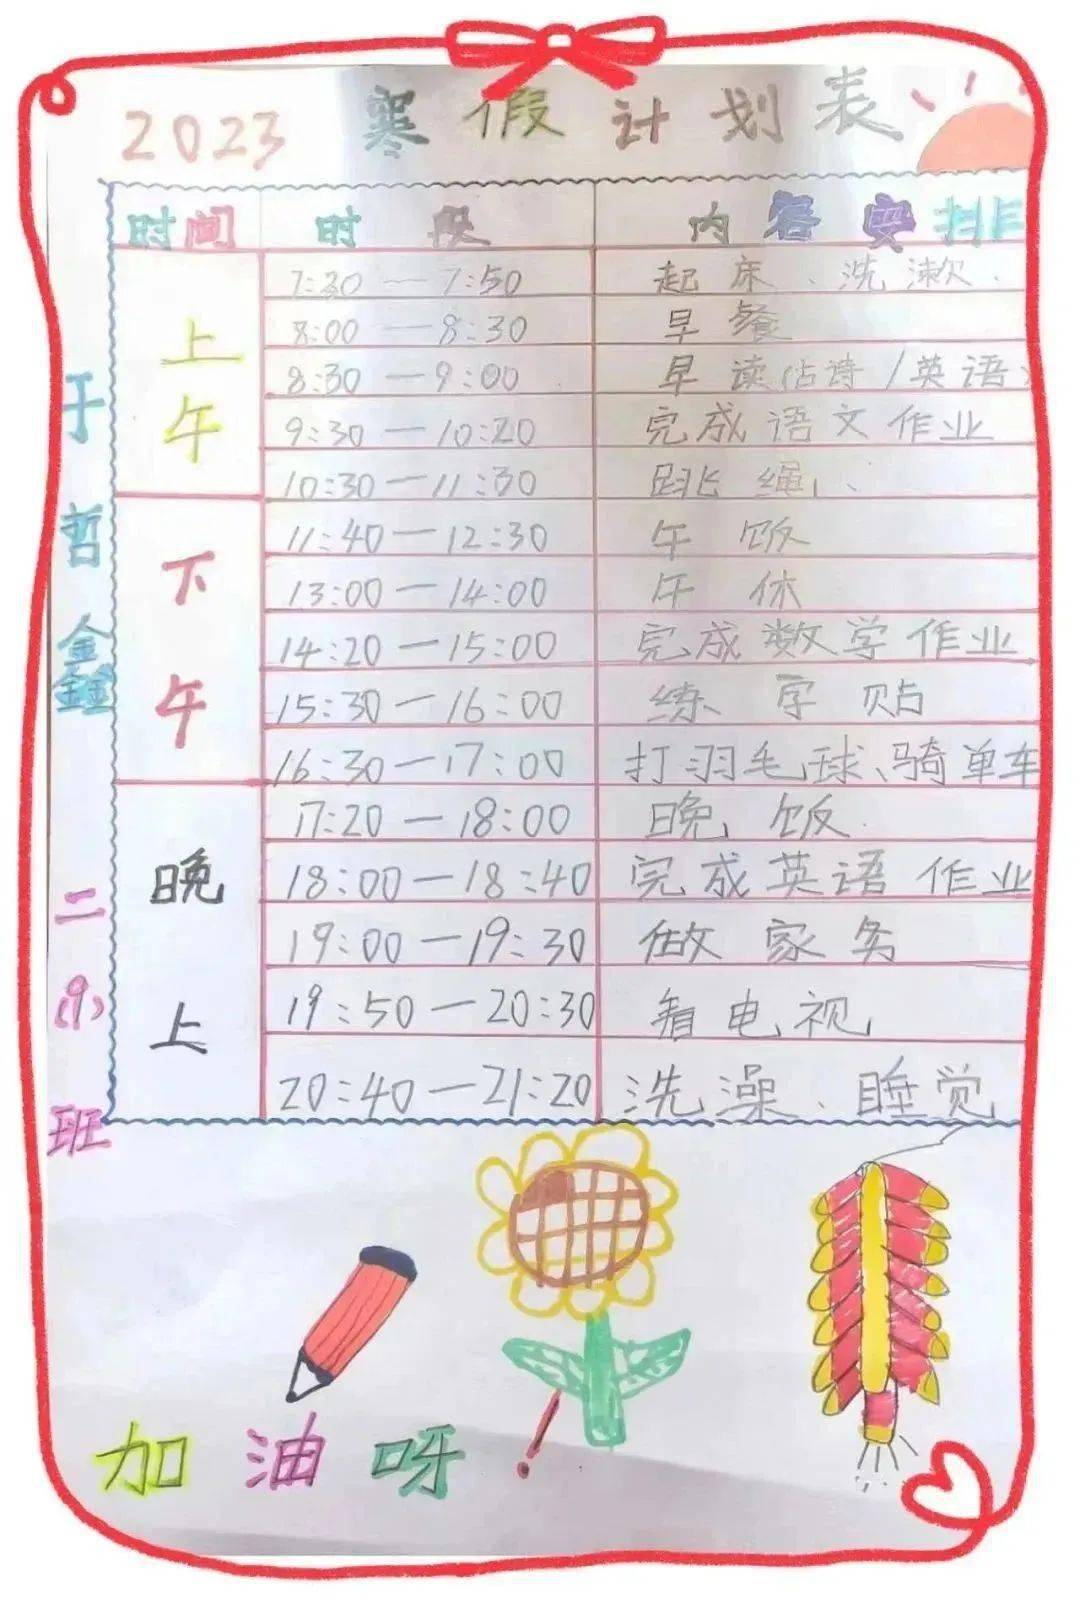 2023 寒假计划表
时间 时段 内容安排
上午
7:30—7:50 起床、洗漱
8:00—8:30 早餐
8:30—9:00 早读(古诗/英语)
9:30—10:20 完成语文作业
10:30—11:30 跳绳
下午
11:40—12:30 午饭
13:00—14:00 午休
14:20—15:00 完成数学作业
15:30—16:00 练字贴
16:30—17:00 打羽毛球、骑单车
晚上
17:20—18:00 晚饭
18:00—18:40 完成英语作业
19:00—19:30 做家务
19:50—20:30 看电视
20:40—21:20 洗澡、睡觉
于哲鑫
二(9)班
加油呀!